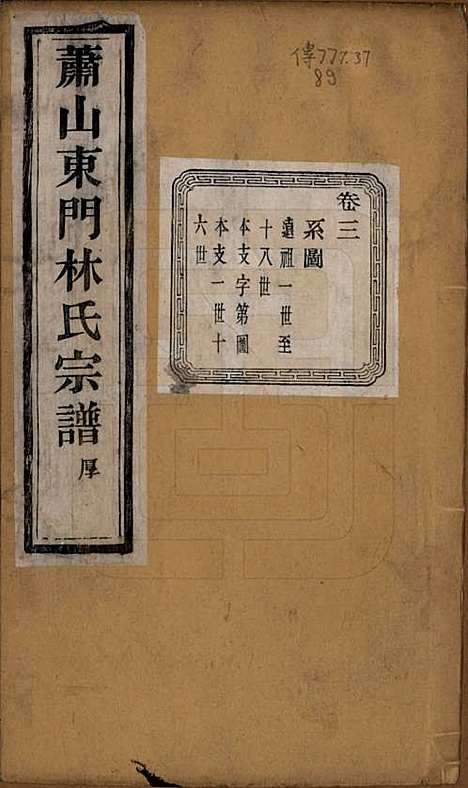 傳777.37
89
卷三
系圖
遠祖一世至
十八世
本支字第圖
本支一世十
六世
蕭山東門林氏宗譜 厚